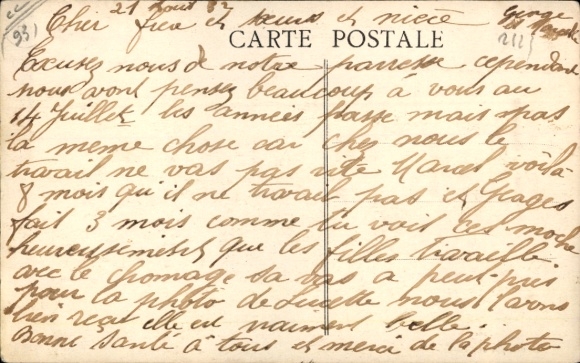 21 Aout 32
Cher frere et soeurs et niéce
CARTE POSTALE
(93)
212
Excusez nous de notre paresse cependant
nous avont pensez beaucoup à vous au
14 Juillet les années passe mais pas
la meme chose car chez nous le
travail ne vas pas vite Marcel voila
8 mois qu'il ne travail pas et Gorges
fait 3 mois comme tu voit ces moche
heureusement que les filles travaille
avec le chomage sa vas a peut pres
pour la photo de Lucette nous l'avons
bien reçu elle est vraiment belle.
Bonne Santé à tous et merci de la photo